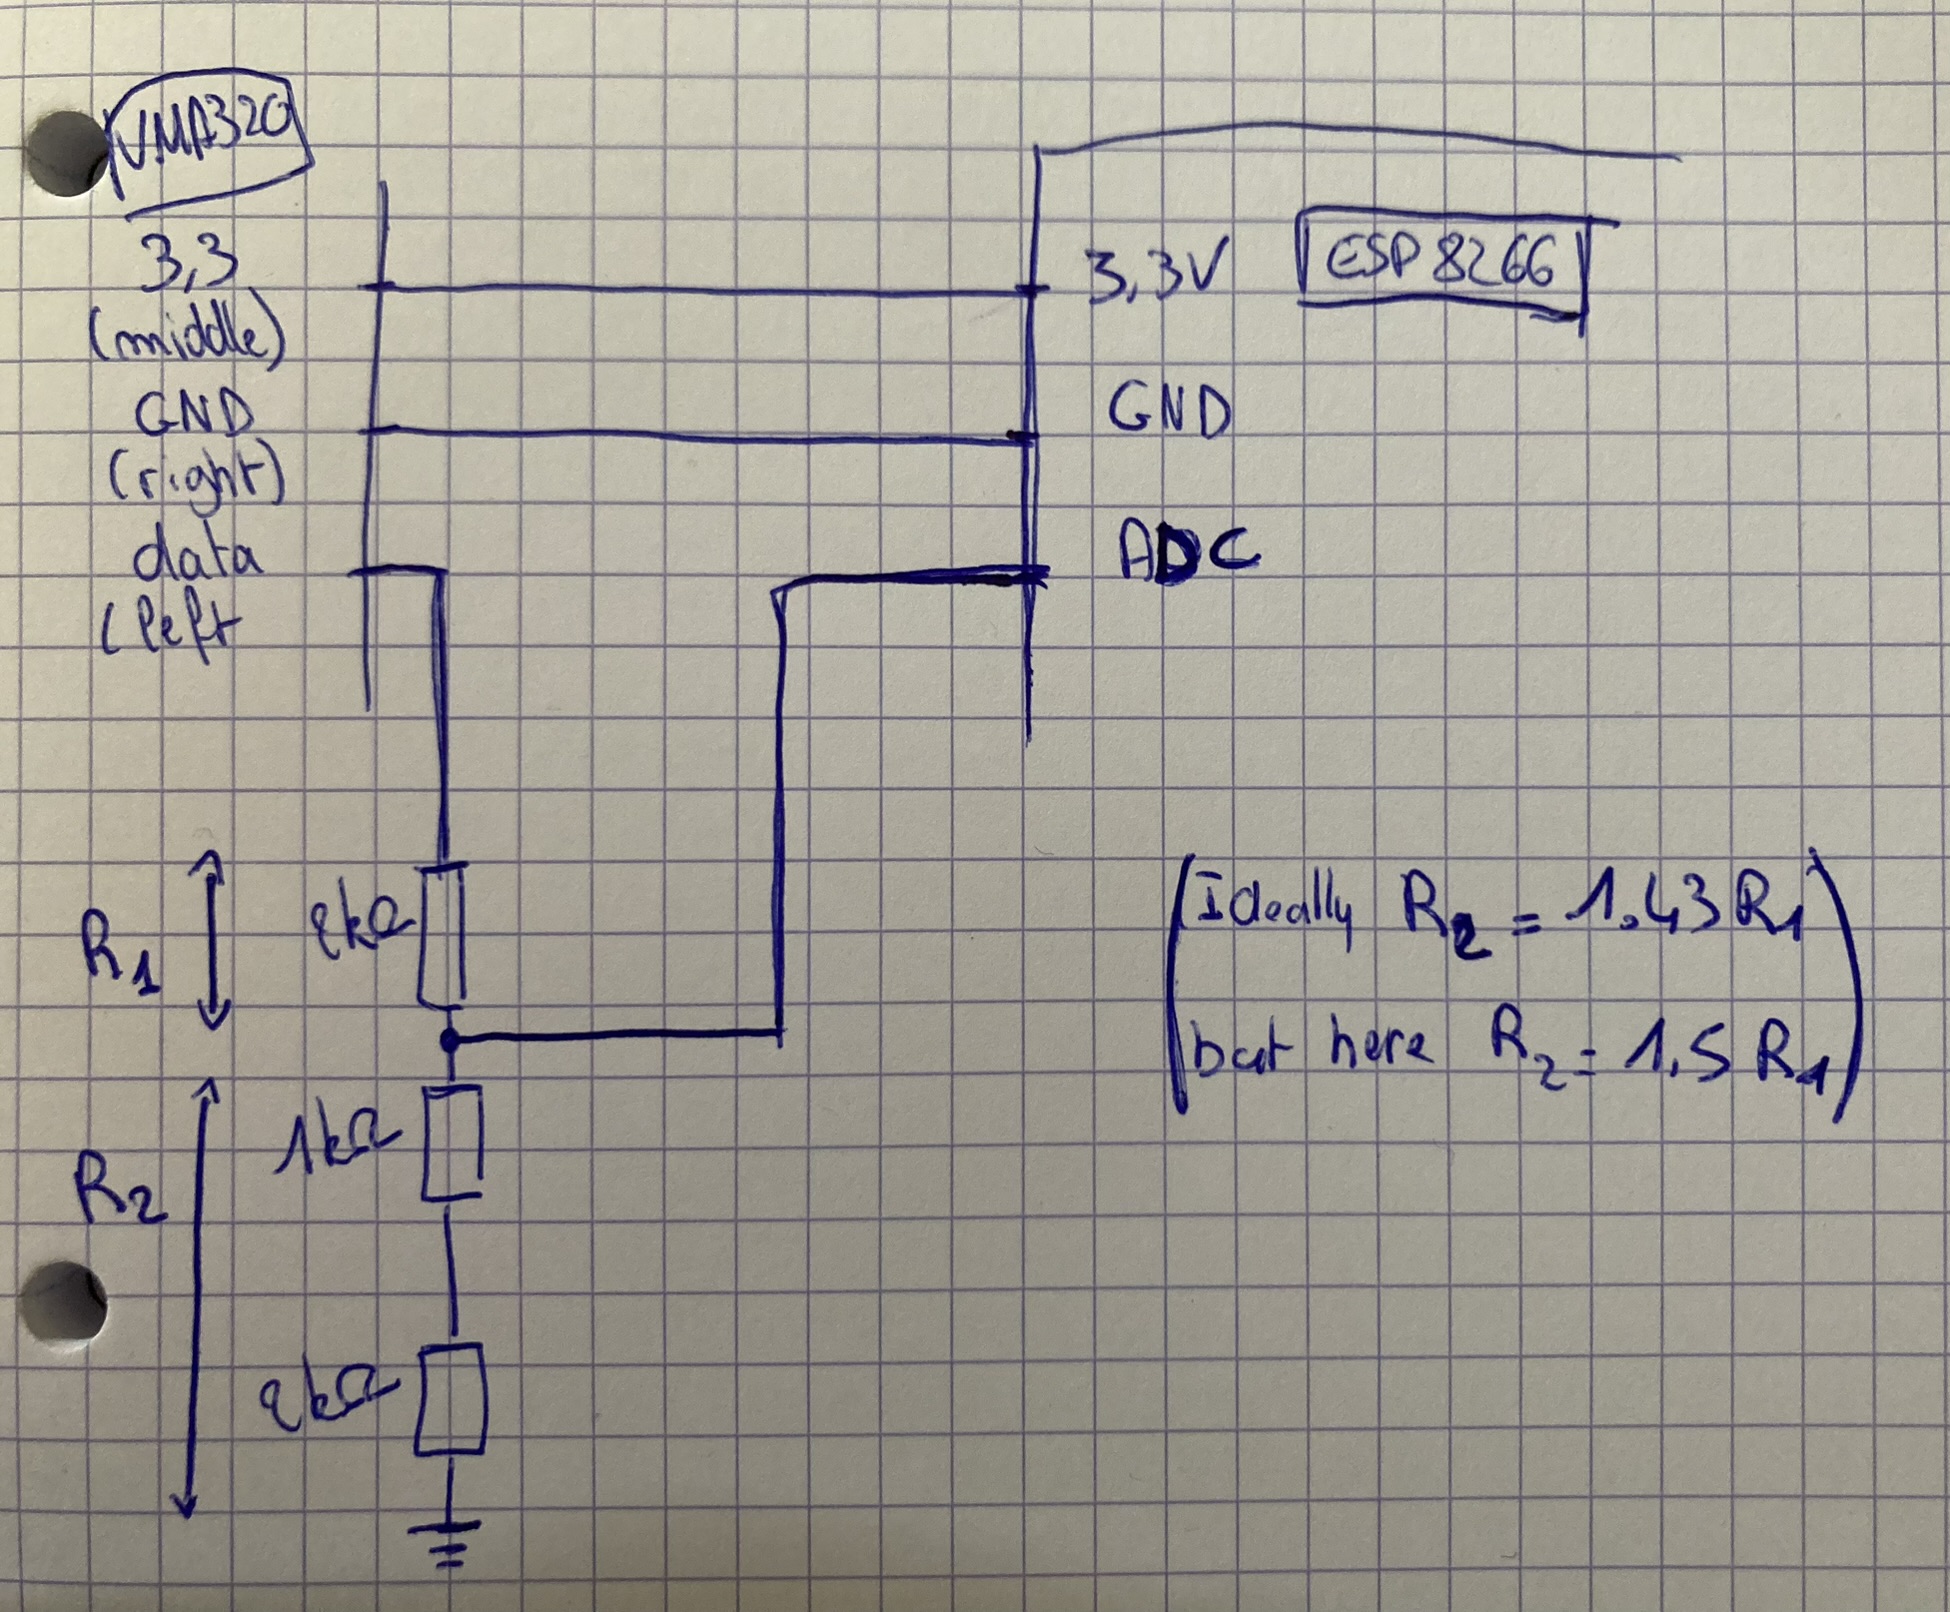 VMA320
3,3
(middle)
GND
(right)
data
(left
3,3V
ESP 8266
GND
ADC
R1
2kΩ
R2
1kΩ
2kΩ
(Ideally R2 = 1.43 R1
but here R2 = 1.5 R1)